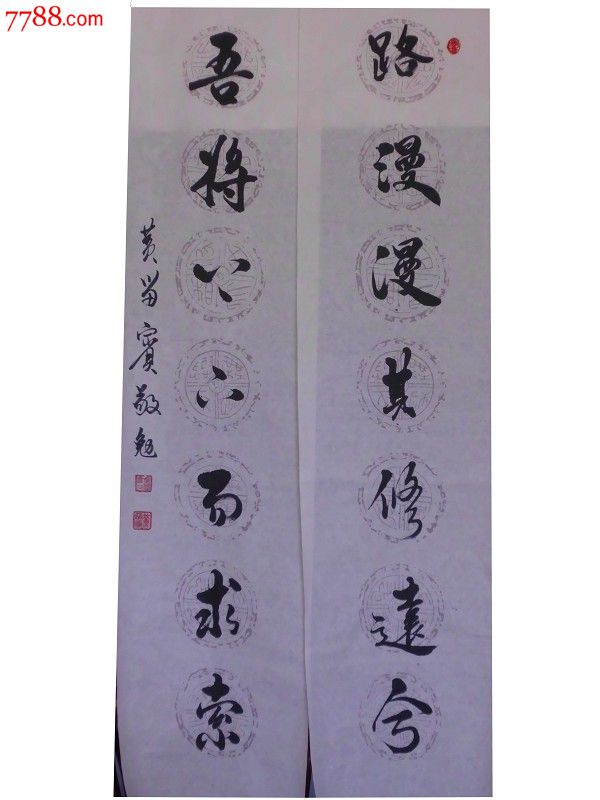 7788.com
路漫漫其修遠兮
吾將上下而求索
黄留賓敬勉